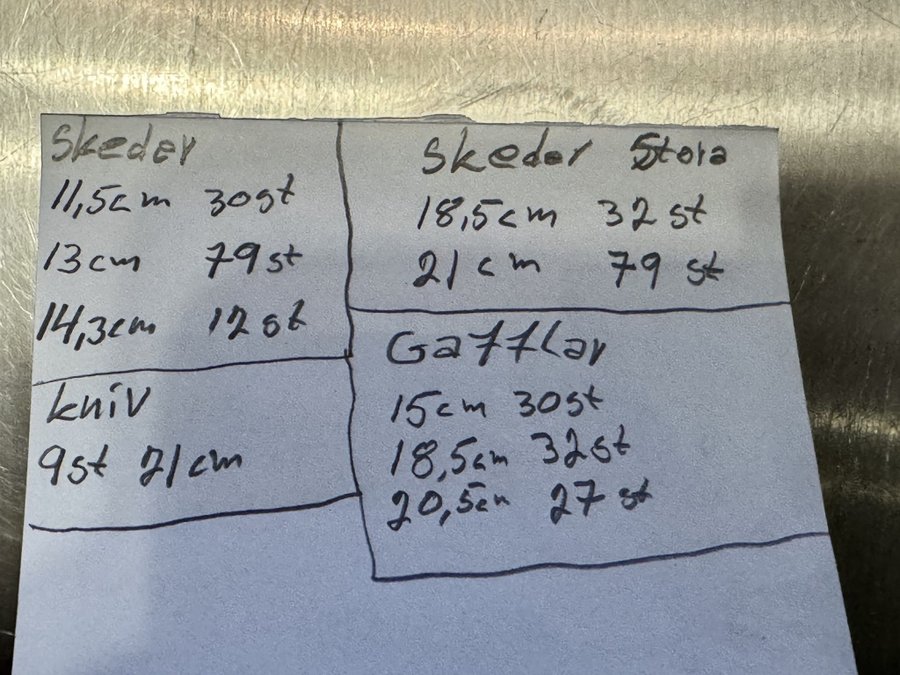 Skeder
11,5cm 30st
13cm 79st
14,3cm 12st
kniv
9st 21cm
Skeder Stora
18,5cm 32st
21cm 79st
Gafflar
15cm 30st
18,5cm 32st
20,5cm 27st